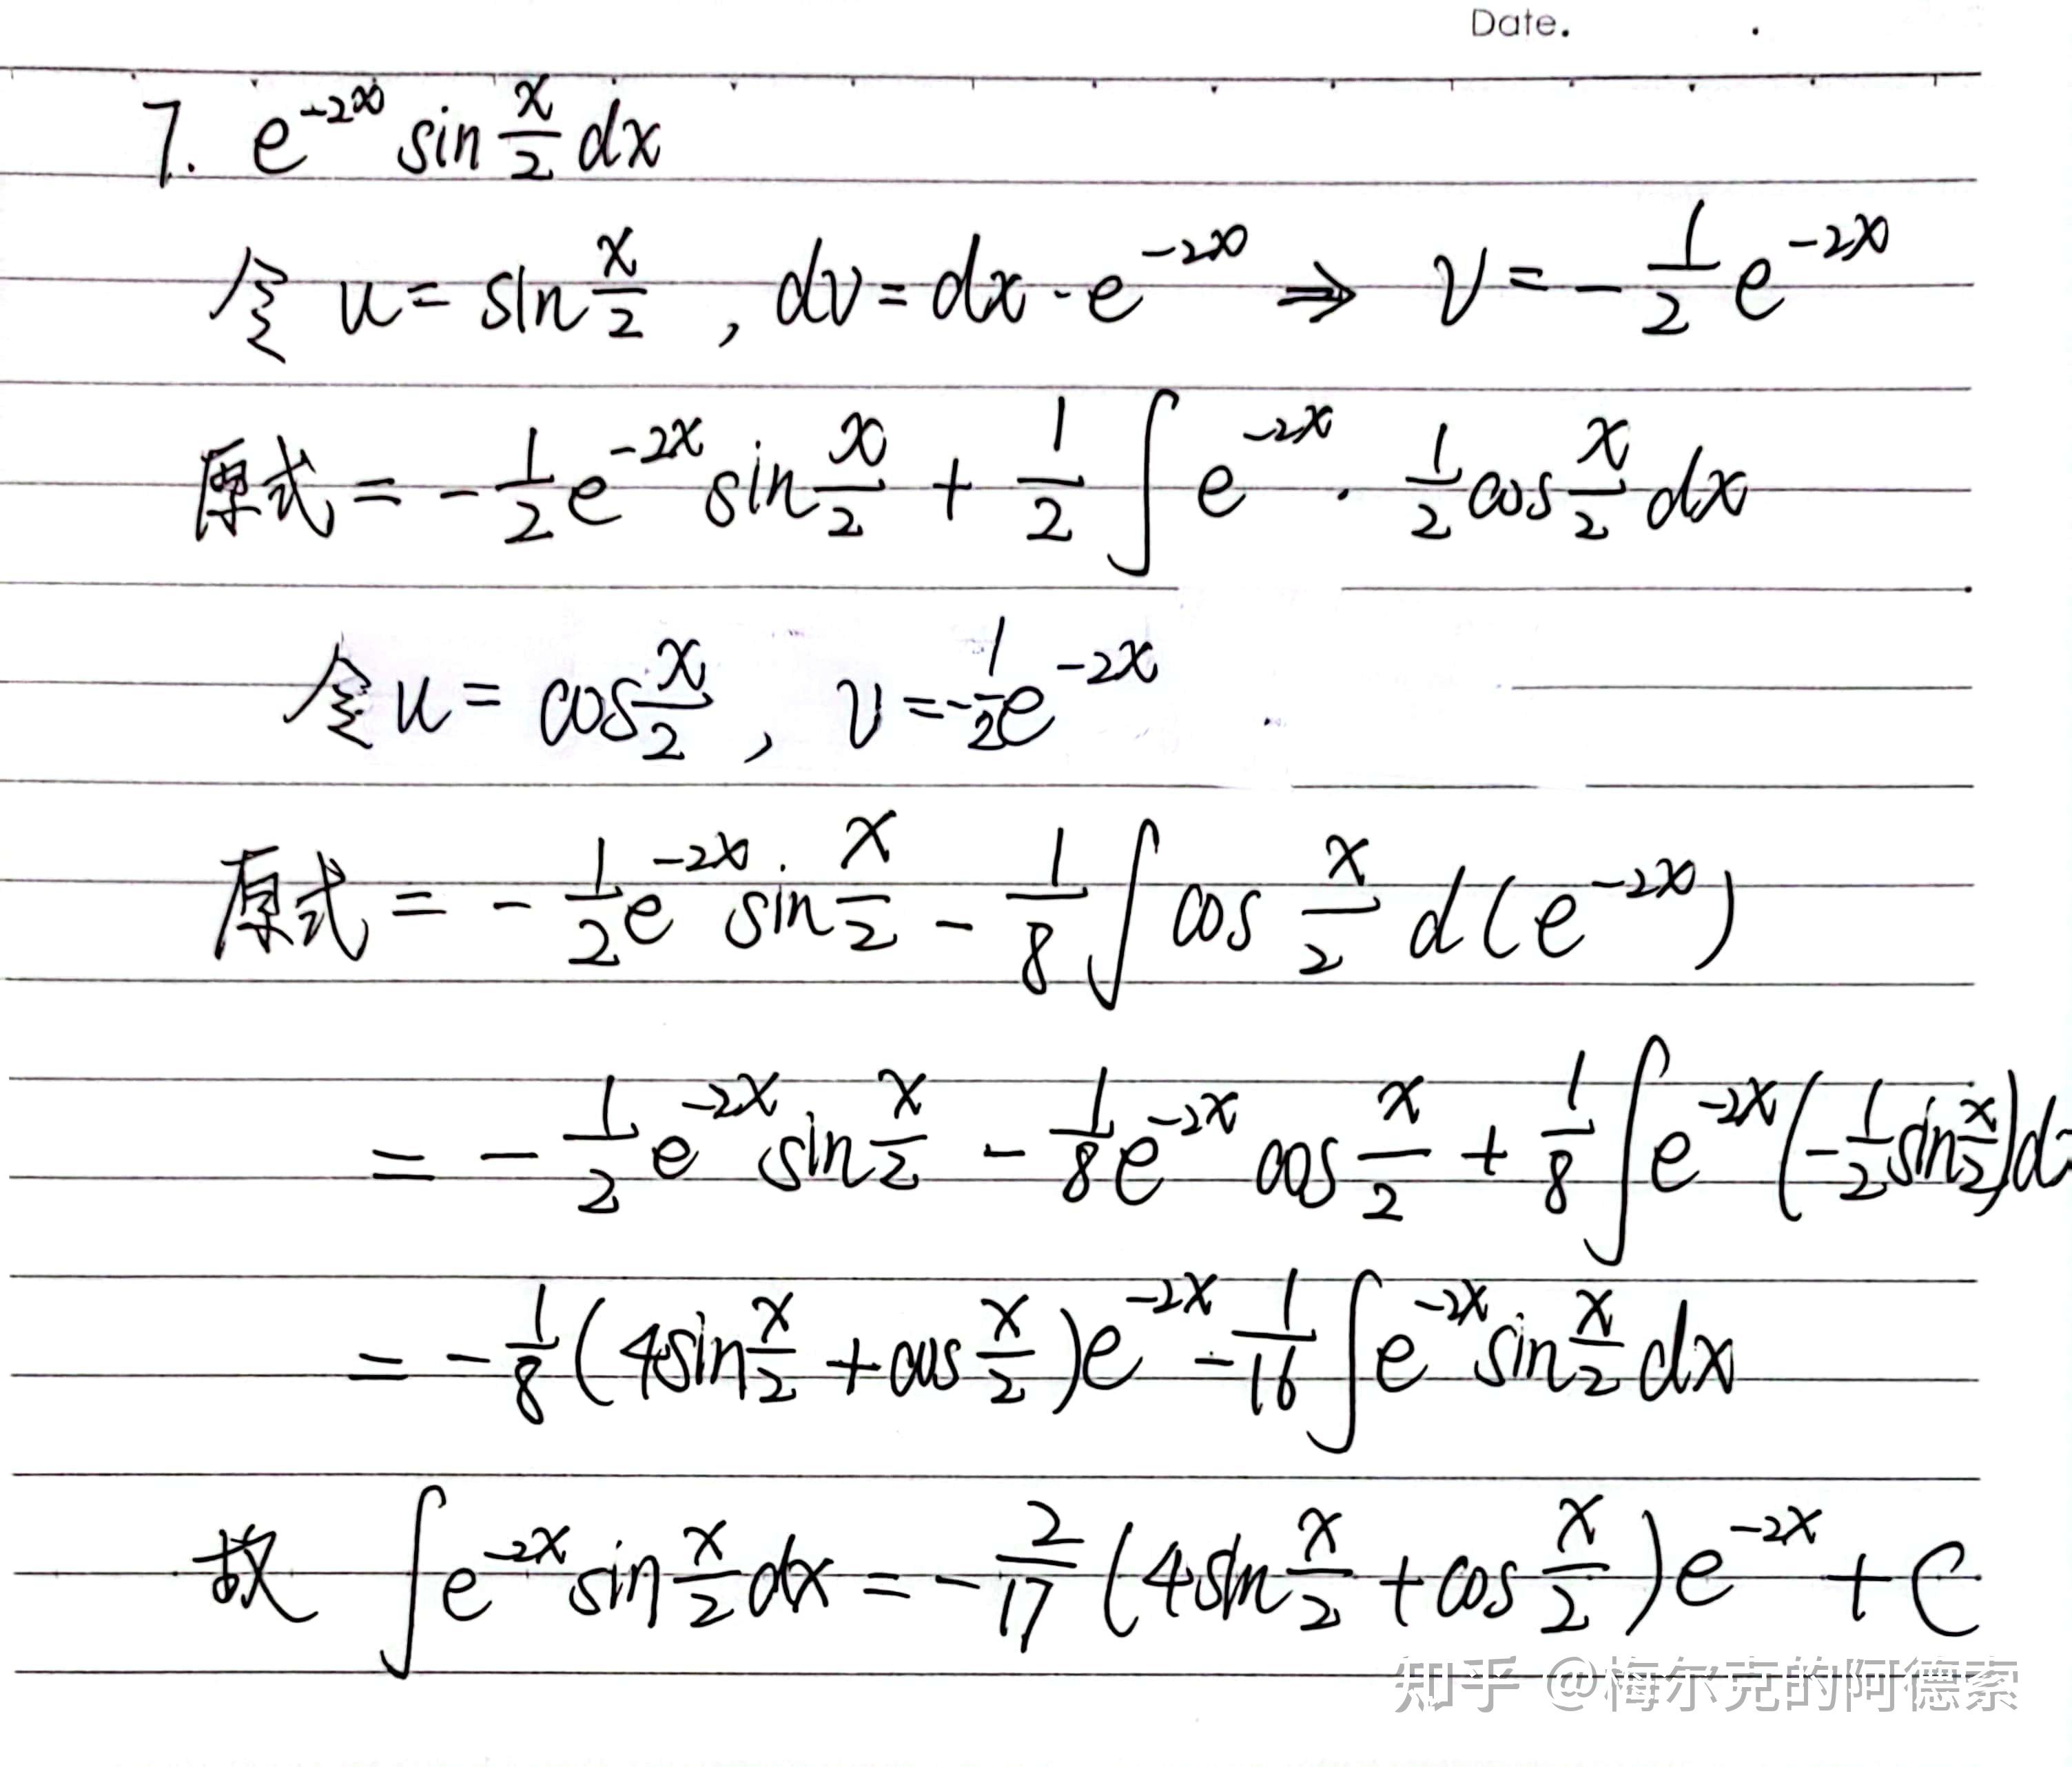 Date.
7. e^{-2x} sin x/2 dx
令 u = sin x/2 , dv = dx · e^{-2x} ⇒ v = - 1/2 e^{-2x}
原式 = - 1/2 e^{-2x} sin x/2 + 1/2 ∫ e^{-2x} · 1/2 cos x/2 dx
令 u = cos x/2 , v = - 1/2 e^{-2x}
原式 = - 1/2 e^{-2x} sin x/2 - 1/8 ∫ cos x/2 d(e^{-2x})
= - 1/2 e^{-2x} sin x/2 - 1/8 e^{-2x} cos x/2 + 1/8 ∫ e^{-2x} (- 1/2 sin x/2) d
= - 1/8 (4sin x/2 + cos x/2) e^{-2x} - 1/16 ∫ e^{-2x} sin x/2 dx
故 ∫ e^{-2x} sin x/2 dx = - 2/17 (4sin x/2 + cos x/2) e^{-2x} + C
知乎 @梅尔克的阿德索